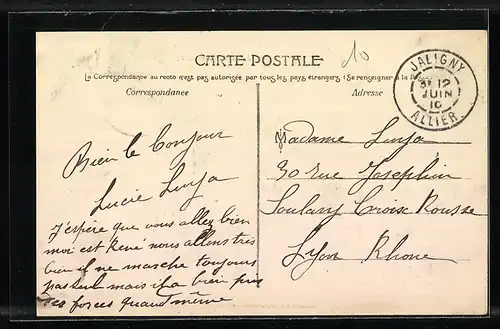 10
CARTE POSTALE
La Correspondance au recto n'est pas autorisée par tous les pays étrangers (Se renseigner à la
Correspondance
Adresse
JALIGNY
12
JUIN
10
ALLIER
Bien le bonjour
Lucie
J'espère que vous allez bien
moi est René nous allons très
bien il ne marche toujours
pas seul mais il a bien pris
des forces quand même
Madame
30 rue Josephin
Soulary Croix Rousse
Lyon Rhone